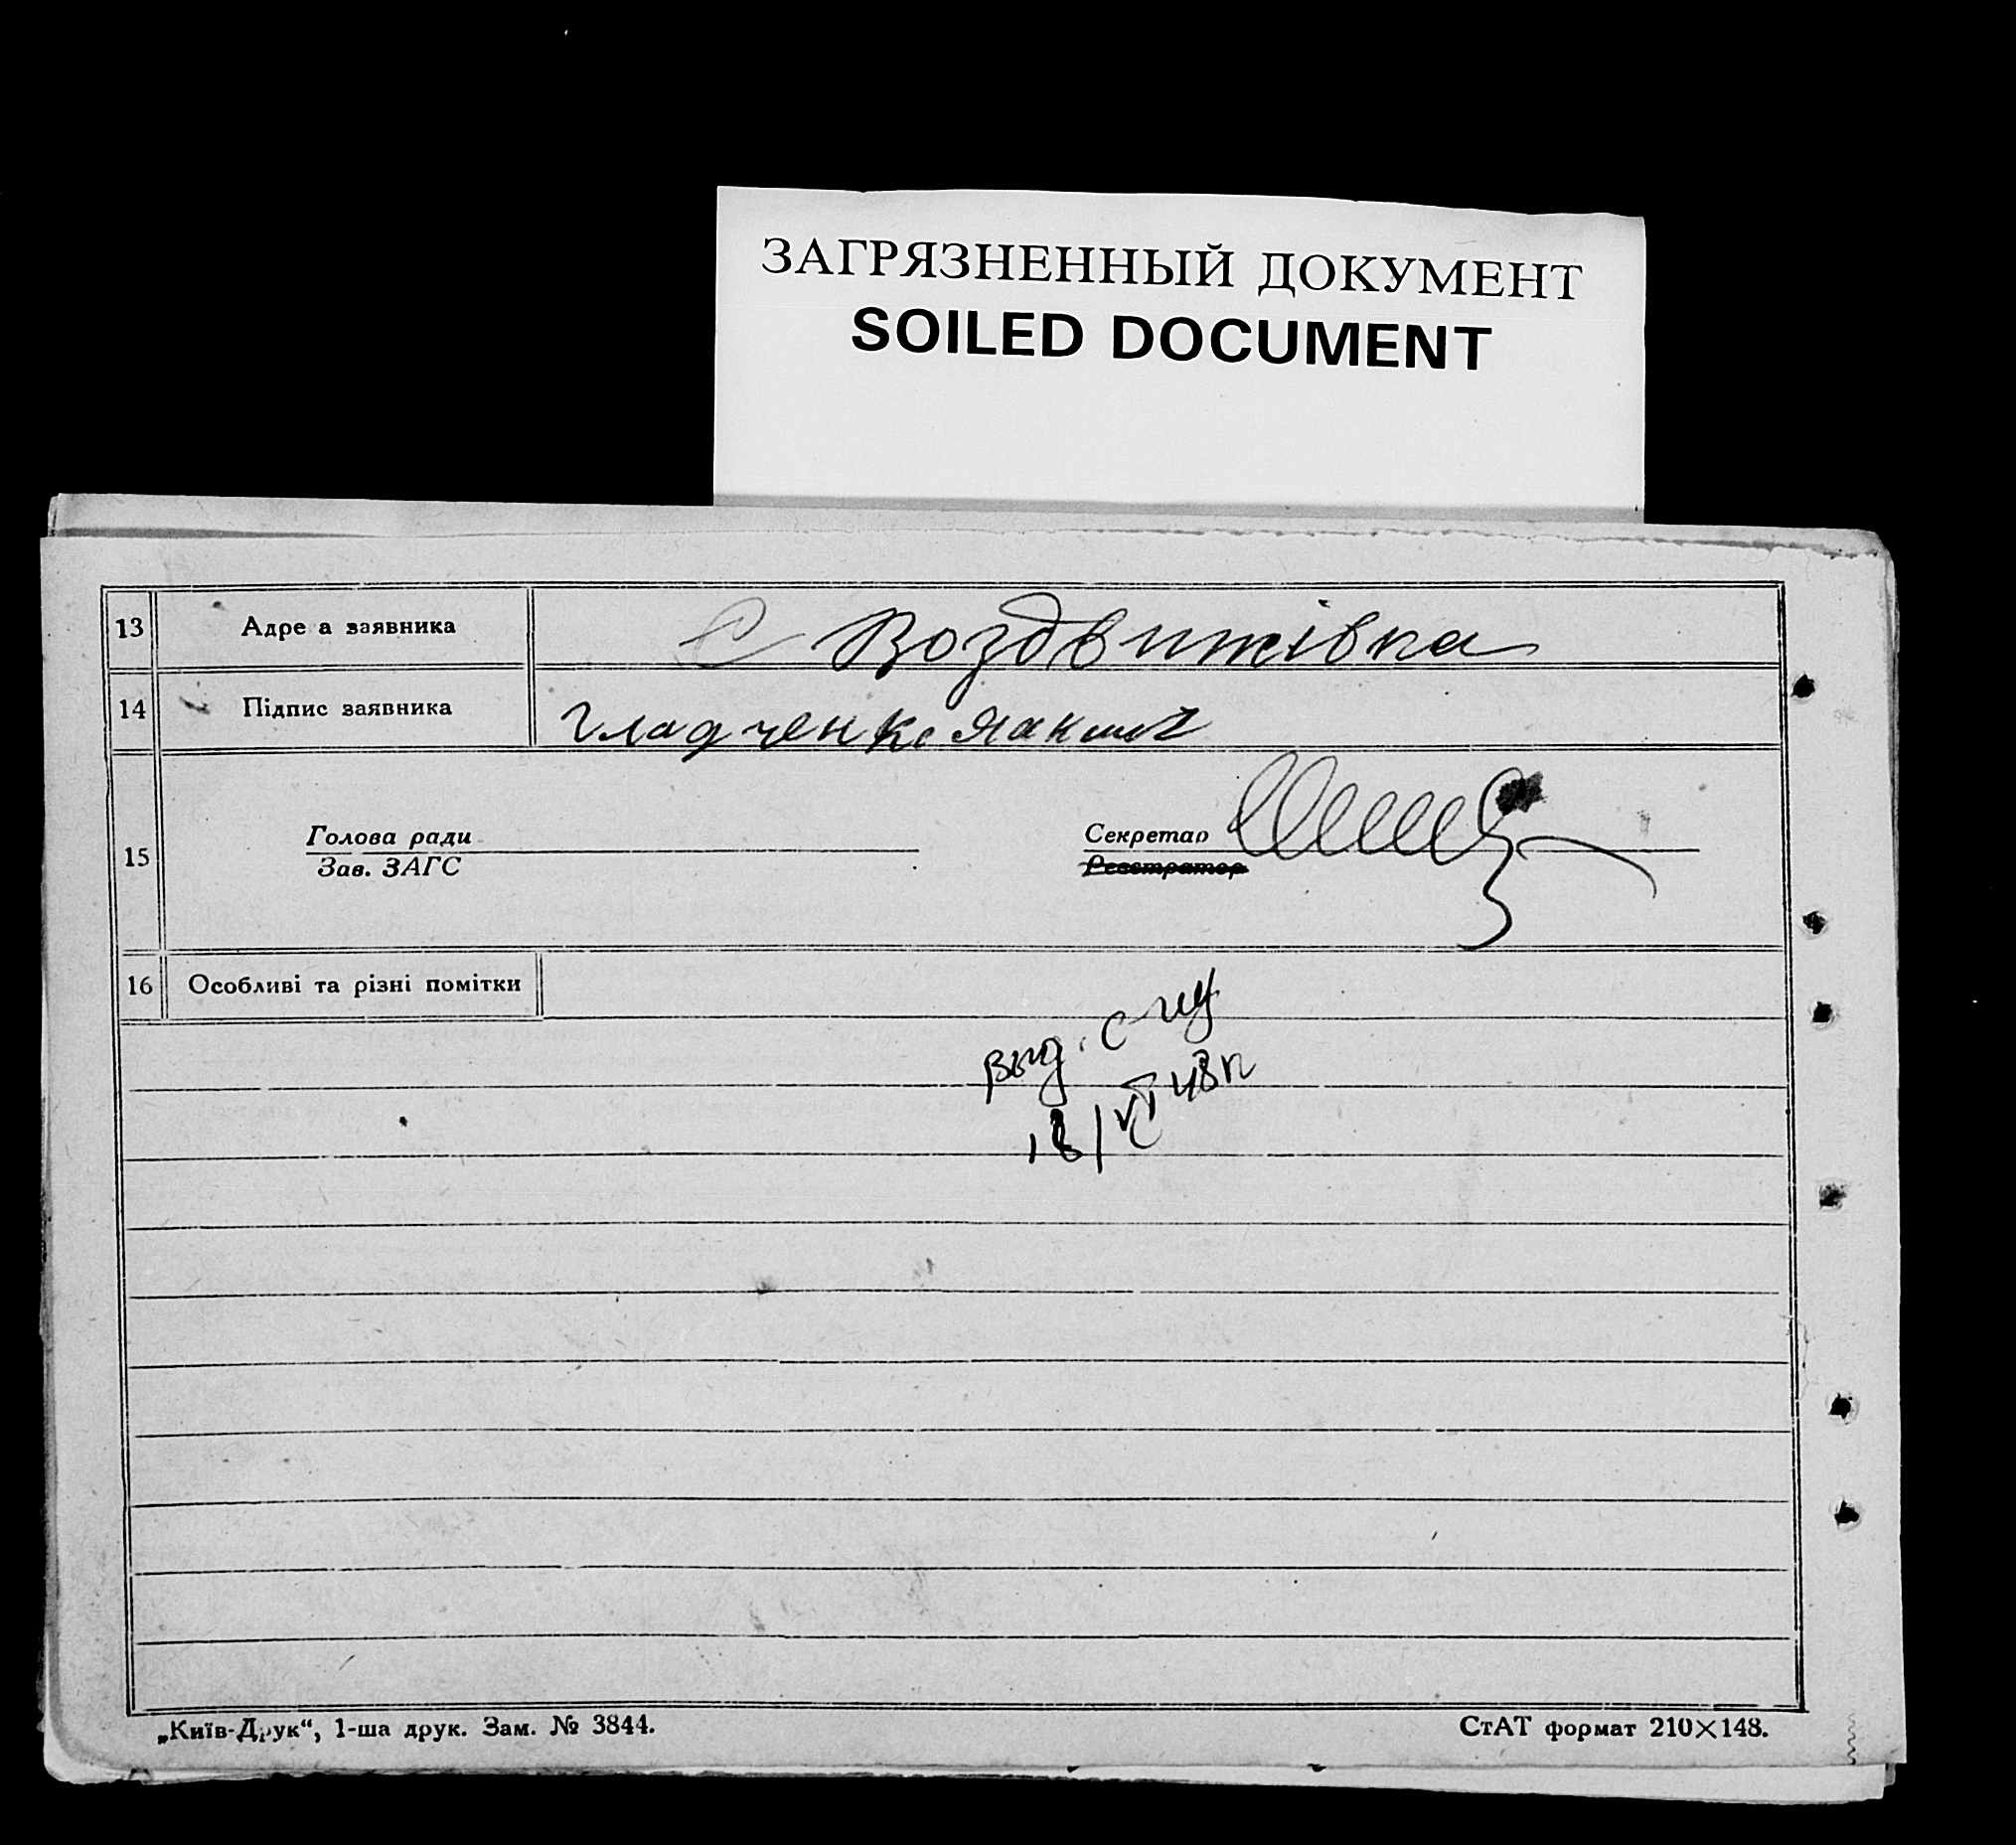 ЗАГРЯЗНЕННЫЙ ДОКУМЕНТ
SOILED DOCUMENT
13 Адре а заявника С Воздвижівка
14 Підпис заявника Гладченко
15 Голова ради Секретар
Зав. ЗАГС Реєстратор
16 Особливі та різні помітки
вид.
18/VI 48
„Київ-Друк“, 1-ша друк. Зам. № 3844. СтАТ формат 210×148.